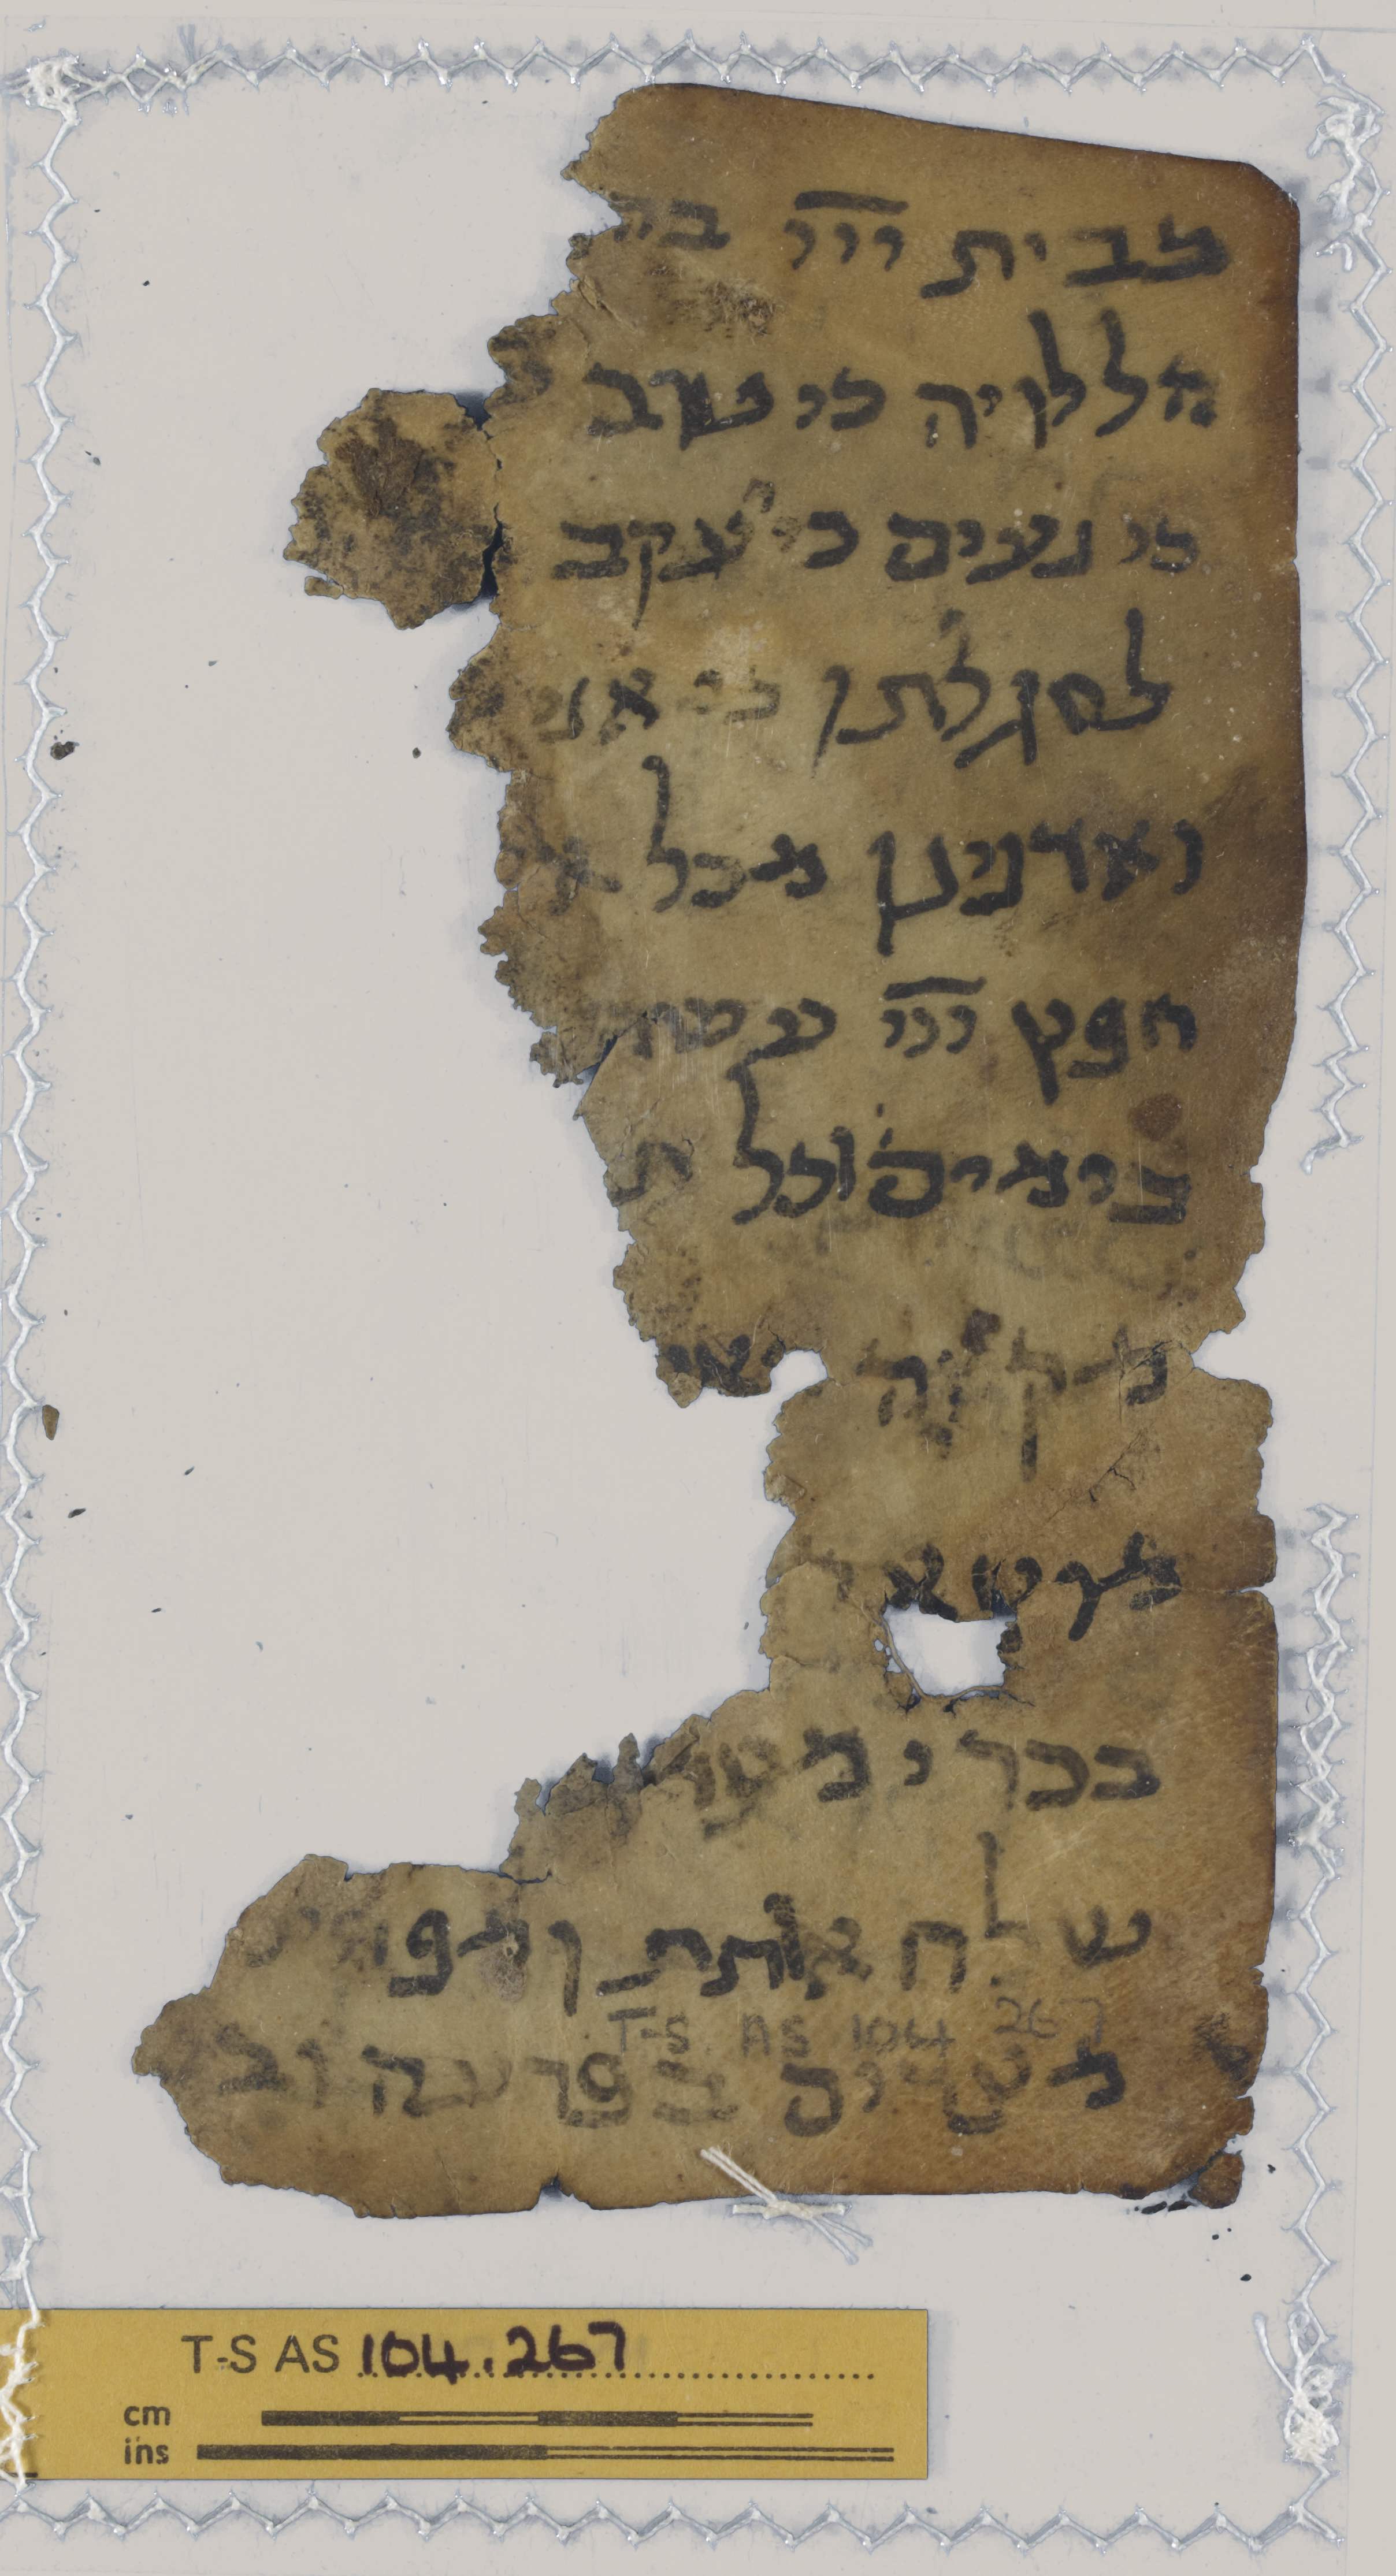 בבית ייי בח
הללו יה כי טוב
כי נעים כי יעקב
לסגלתו כי אני
ואדנינו מכל א
חפץ ייי עשה
בימים וכל ת
מקצה
מוצא ר
בכרי מצר
שלח אותת ומפ
מצרים בפרעה וב
T-S AS 104 267
T-S AS 104.267
cm
ins